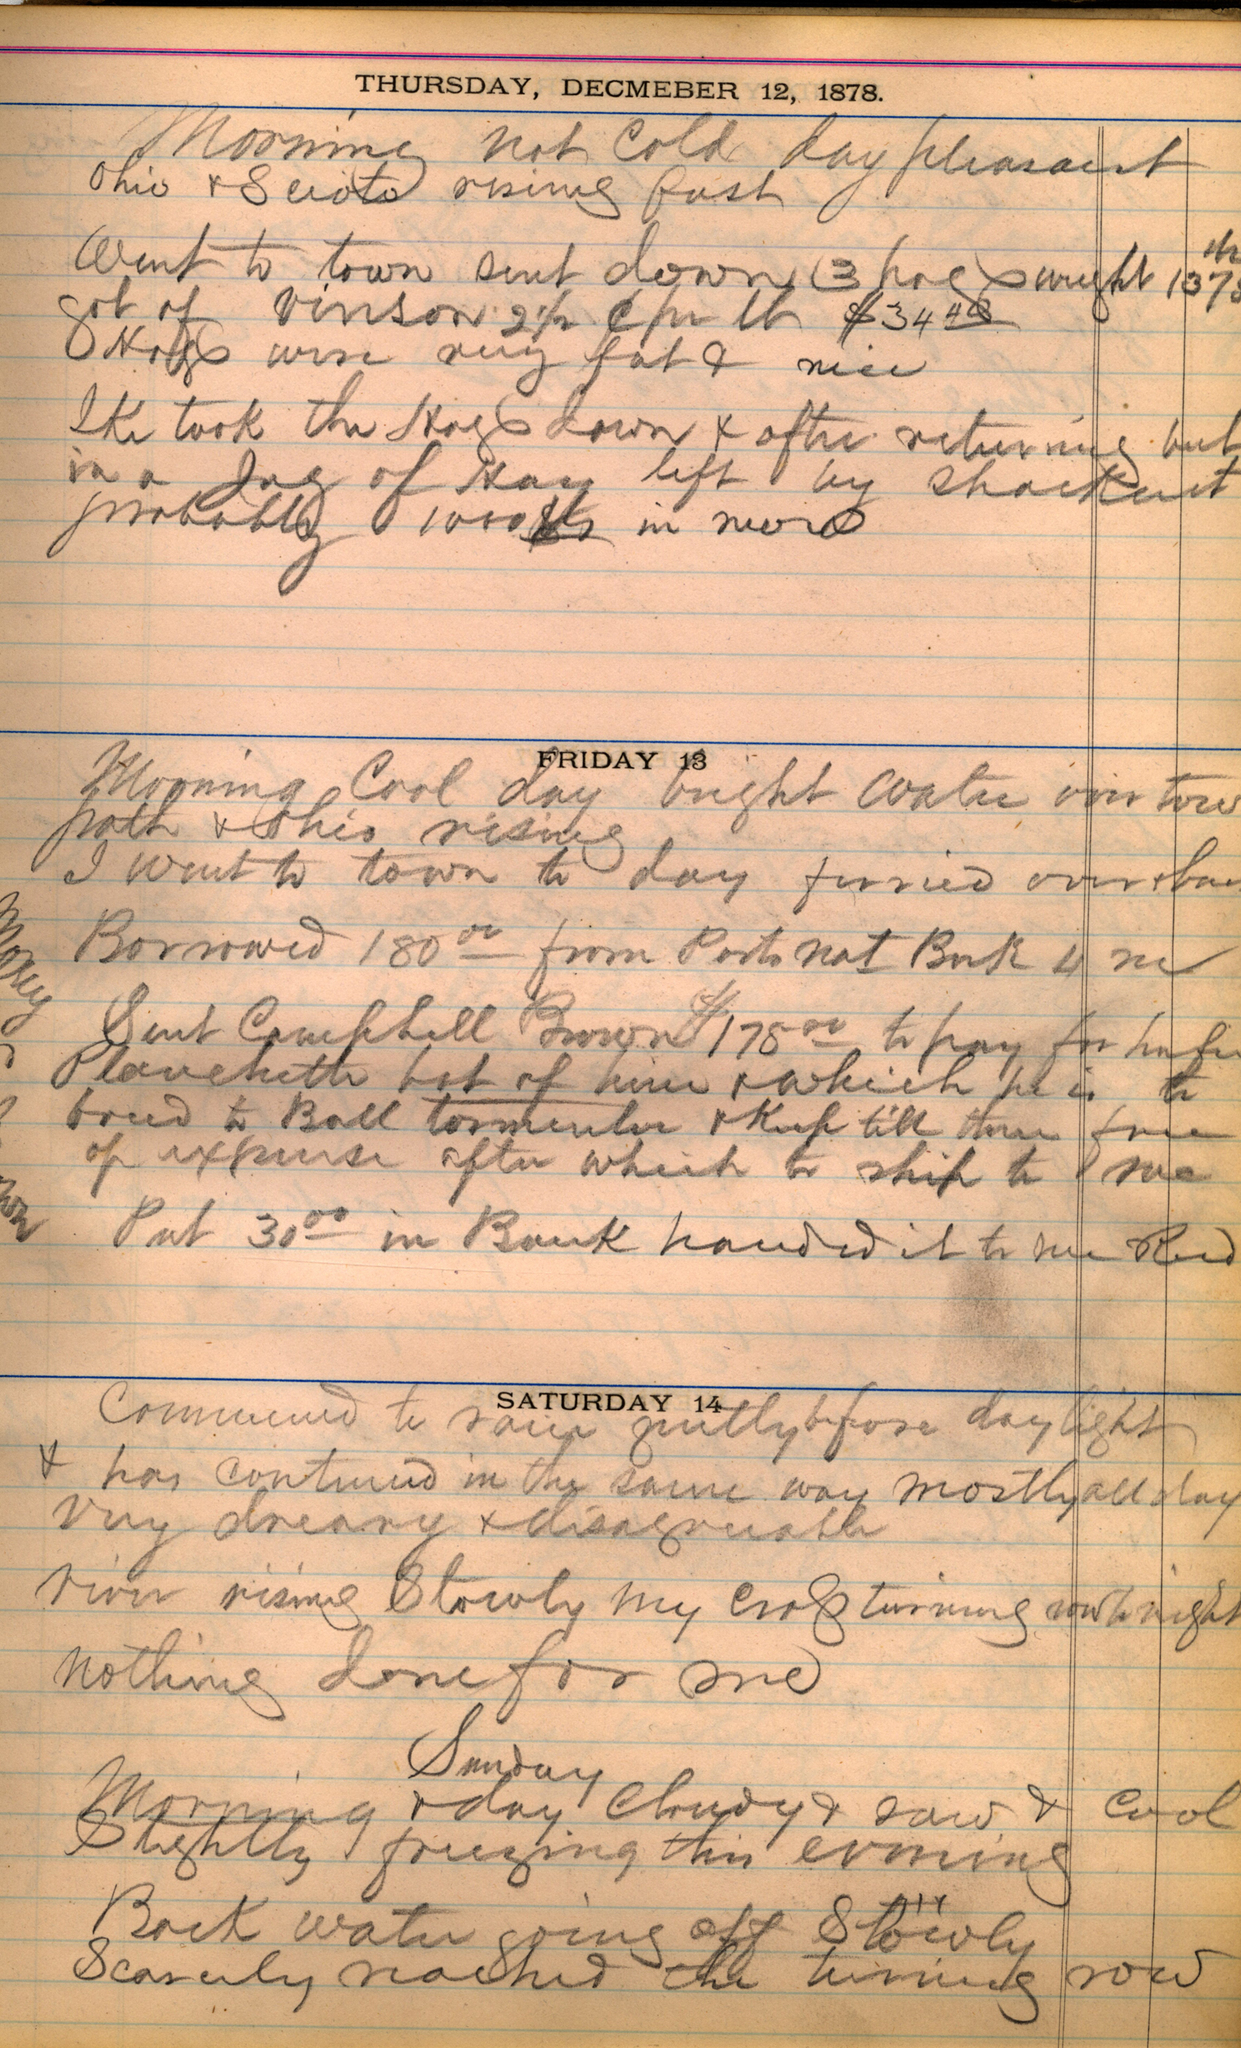 THURSDAY, DECMEBER 12, 1878.
Morning not Cold day pleasant
Ohio & Scioto rising fast
Went to town sent down 3 hogs weight 1378
got of Vinson 2½ c per lb $34.48
Hogs were very fat & nice
Ike took the Hogs down & after returning
in a Jag of Hay left by
probably 1000 lbs in
FRIDAY 13
Morning Cool day bright Water over tow
path & Ohio rising
I went to town to day ferried over &
Borrowed 180 00 from Ports Nat Bank 4
Sent Campbell Brown $178 00 to pay for
of him & which he is to
breed to Bull tormentor & Keep till then free
of expense after which to ship to me
Put 30 00 in Bank handed it to Reed
Money
SATURDAY 14
Commenced to rain gently before daylight
& has continued in the same way mostly all day
Very dreary & disagreeable
river rising Slowly my Crop turning row to night
nothing done for me
Sunday
Morning & day Cloudy & raw & Cool
Slightly freezing this evening
Back water going off Slowly
Scarcely reached the turning row